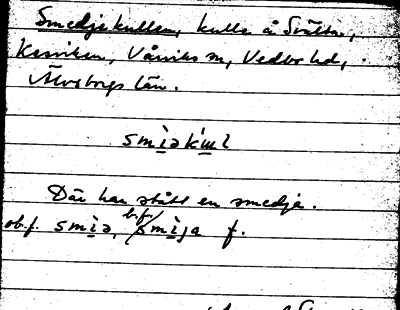 Smedjekullen, kulle å Svätte,
Kasviken, Vårviks sn, Vedbo hd,
Älvsborgs län.
smì̱ək'u̱l
Där har stått en smedja.
ob.f. smì̱ə, b.f. smì̱ja f.